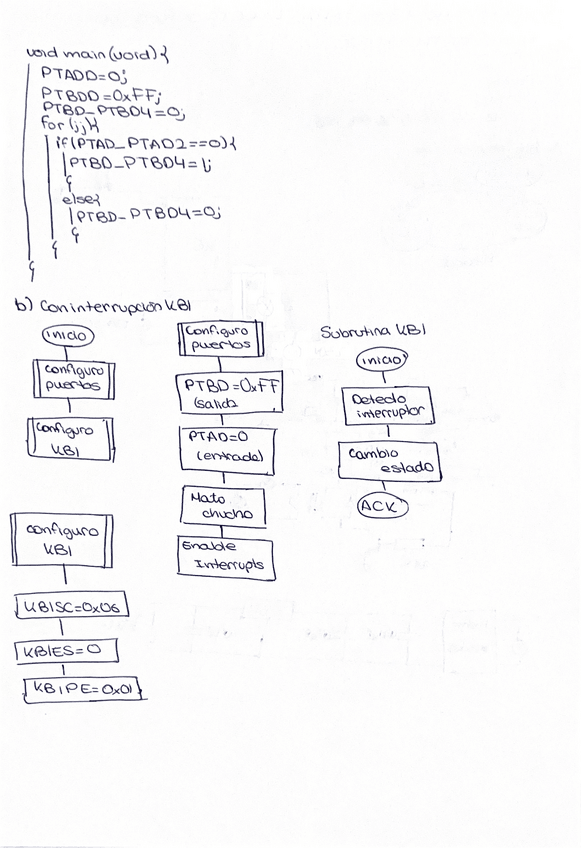 void main(void){
PTADD=0;
PTBDD=0xFF;
PTBD_PTBD4=0;
for(;;){
if(PTAD_PTAD2==0){
PTBD_PTBD4=1;
}
else{
PTBD_PTBD4=0;
}
}
}
b) Con interrupción KBI
inicio
Configuro
puertos
Configuro
KBI
Configuro
KBI
KBISC=0x06
KBIES=0
KBIPE=0x01
Configuro
puertos
PTBD=0xFF
(salida
PTAD=0
(entrada)
Mato
chucho
Enable
Interrupts
Subrutina KBI
inicio
Detecto
interruptor
Cambio
estado
ACK